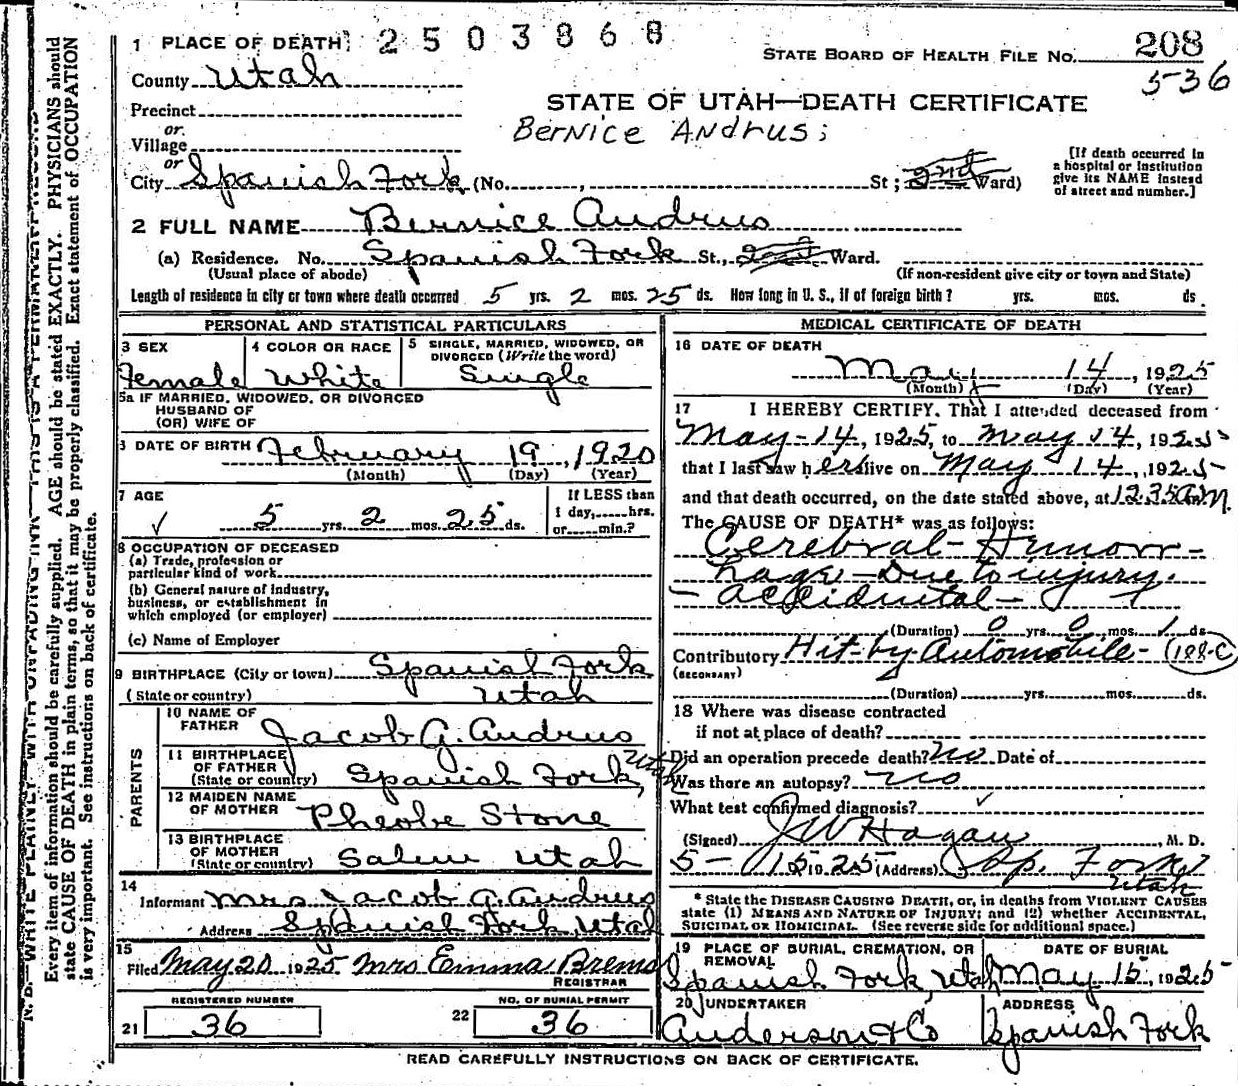 1 PLACE OF DEATH 2503868
STATE BOARD OF HEALTH FILE NO. 208
536
County Utah
STATE OF UTAH—DEATH CERTIFICATE
Precinct
Bernice Andrus;
or
Village
or
City Spanish Fork (No. , St; 2nd Ward)
[If death occurred in
a hospital or institution
give its NAME instead
of street and number.]
2 FULL NAME Bernice Andrus
(a) Residence. No. Spanish Fork St., Ward.
(Usual place of abode) (If non-resident give city or town and State)
Length of residence in city or town where death occurred 5 yrs. 2 mos. 25 ds. How long in U. S., if of foreign birth? yrs. mos. ds.
PERSONAL AND STATISTICAL PARTICULARS
3 SEX 4 COLOR OR RACE 5 SINGLE, MARRIED, WIDOWED, OR
DIVORCED (Write the word)
Female White Single
5a IF MARRIED, WIDOWED, OR DIVORCED
HUSBAND OF
(OR) WIFE OF
DATE OF BIRTH February 19, 1920
(Month) (Day) (Year)
7 AGE If LESS than
1 day,.....hrs.
✓ 5 yrs. 2 mos. 25 ds. or.....min.?
8 OCCUPATION OF DECEASED
(a) Trade, profession or
particular kind of work
(b) General nature of Industry,
business, or establishment in
which employed (or employer)
(c) Name of Employer
9 BIRTHPLACE (City or town) Spanish Fork
(State or country) Utah
PARENTS
10 NAME OF
FATHER Jacob G. Andrus
11 BIRTHPLACE
OF FATHER
(State or country) Spanish Fork, Utah
12 MAIDEN NAME
OF MOTHER Pheobe Stone
13 BIRTHPLACE
OF MOTHER
(State or country) Salem Utah
14
Informant Mrs Jacob G. Andrus
Address Spanish Fork Utah
15
Filed May 20 1925 Mrs Emma Brems
REGISTRAR
REGISTERED NUMBER NO. OF BURIAL PERMIT
21 36 22 36
MEDICAL CERTIFICATE OF DEATH
16 DATE OF DEATH
May 14, 1925
(Month) (Day) (Year)
17 I HEREBY CERTIFY, That I attended deceased from
May-14, 1925, to May 14, 1925
that I last saw her alive on May 14, 1925
and that death occurred, on the date stated above, at 12:35 a.m.
The CAUSE OF DEATH* was as follows:
Cerebral-Hemorr-
hage-Due to injury.
- accidental-
(Duration) 0 yrs. 0 mos. 1 ds
Contributory Hit-by Automobile- 188-C
(SECONDARY)
(Duration) yrs. mos. ds.
18 Where was disease contracted
if not at place of death?
Did an operation precede death? No Date of
Was there an autopsy? No
What test confirmed diagnosis? ✓
(Signed) J W Hagan, M. D.
5-15 1925 (Address) Sp. Fork
Utah
* State the DISEASE CAUSING DEATH, or, in deaths from VIOLENT CAUSES
state (1) MEANS AND NATURE OF INJURY; and (2) whether ACCIDENTAL,
SUICIDAL OR HOMICIDAL. (See reverse side for additional space.)
19 PLACE OF BURIAL, CREMATION, OR
REMOVAL DATE OF BURIAL
Spanish Fork, Utah May 15, 1925
20 UNDERTAKER ADDRESS
Anderson & Co Spanish Fork
READ CAREFULLY INSTRUCTIONS ON BACK OF CERTIFICATE.
N. B. WRITE PLAINLY WITH UNFADING INK—THIS IS A PERMANENT RECORD
Every item of information should be carefully supplied. AGE should be stated EXACTLY. PHYSICIANS should
state CAUSE OF DEATH in plain terms, so that it may be properly classified. Exact statement of OCCUPATION
is very important. See instructions on back of certificate.